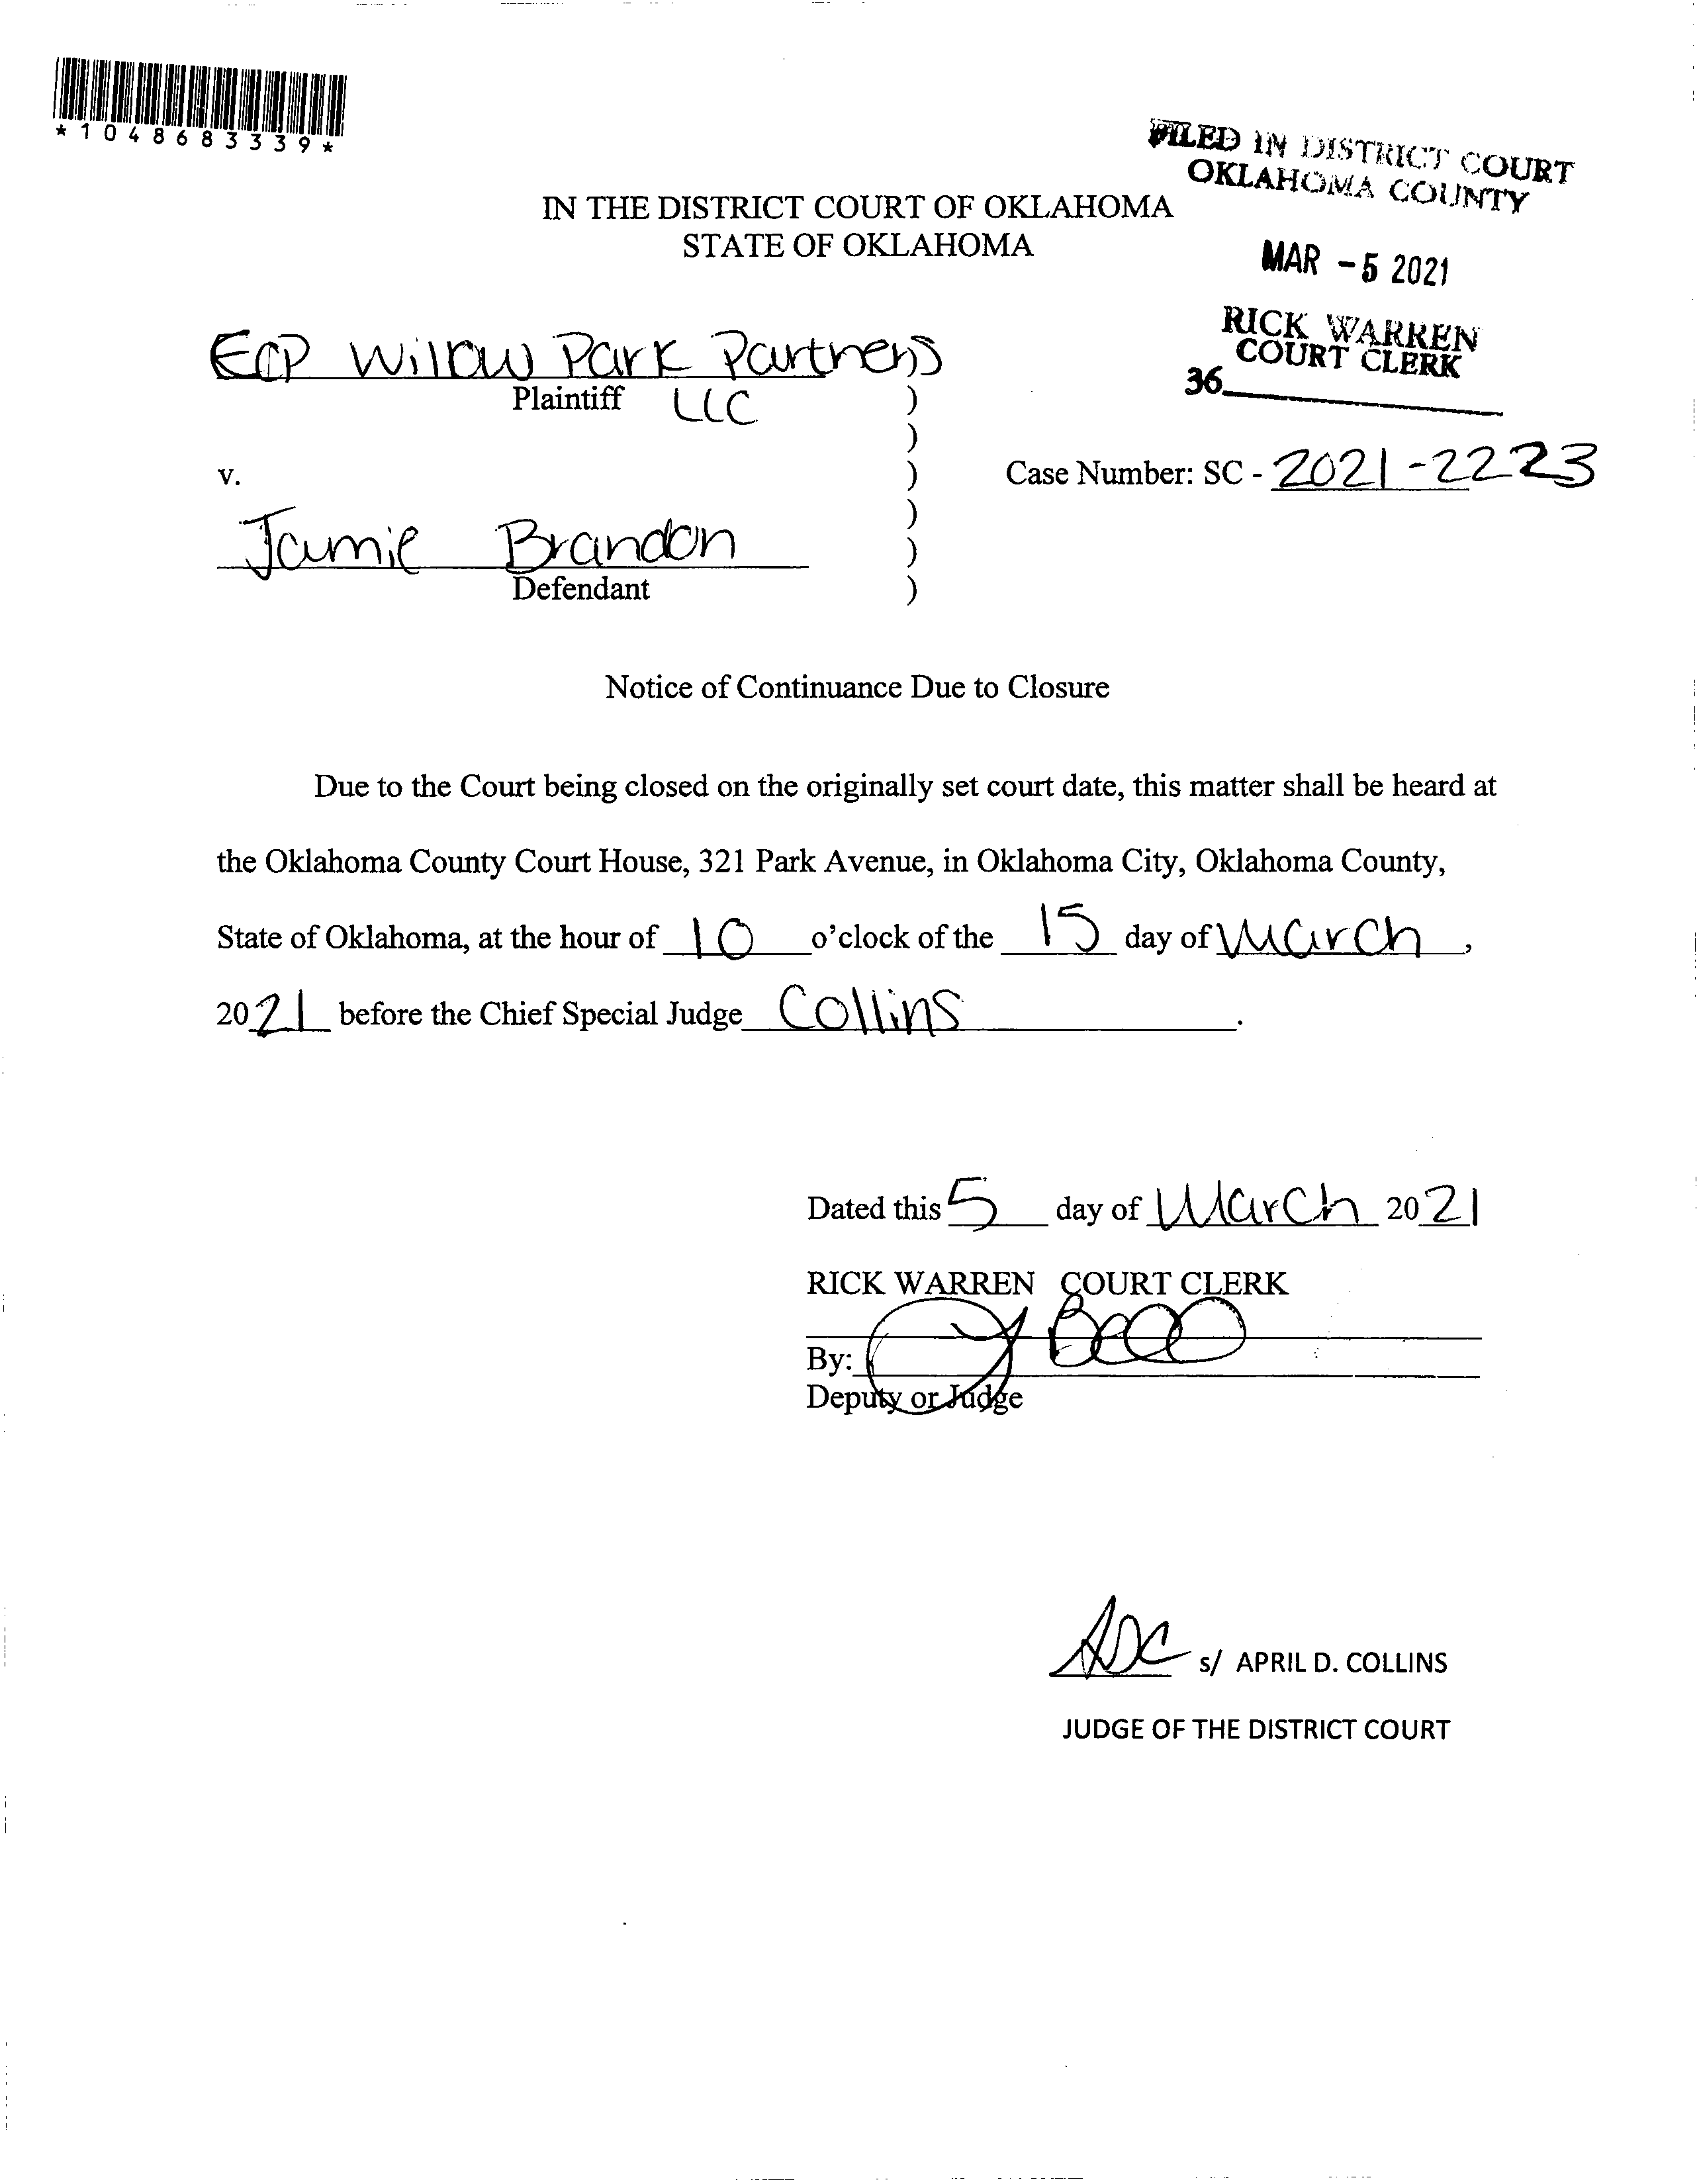 *1048683339*
FILED IN DISTRICT COURT
OKLAHOMA COUNTY
MAR -5 2021
RICK WARREN
COURT CLERK
36
IN THE DISTRICT COURT OF OKLAHOMA
STATE OF OKLAHOMA
ECP Willow Park Partners
Plaintiff LLC )
)
v. )
Case Number: SC - 2021-2223
)
Jamie Brandon )
Defendant )
Notice of Continuance Due to Closure
Due to the Court being closed on the originally set court date, this matter shall be heard at
the Oklahoma County Court House, 321 Park Avenue, in Oklahoma City, Oklahoma County,
State of Oklahoma, at the hour of 10 o'clock of the 15 day of March,
2021 before the Chief Special Judge Collins.
Dated this 5 day of March 2021
RICK WARREN COURT CLERK
By:
Deputy or Judge
ADC s/ APRIL D. COLLINS
JUDGE OF THE DISTRICT COURT